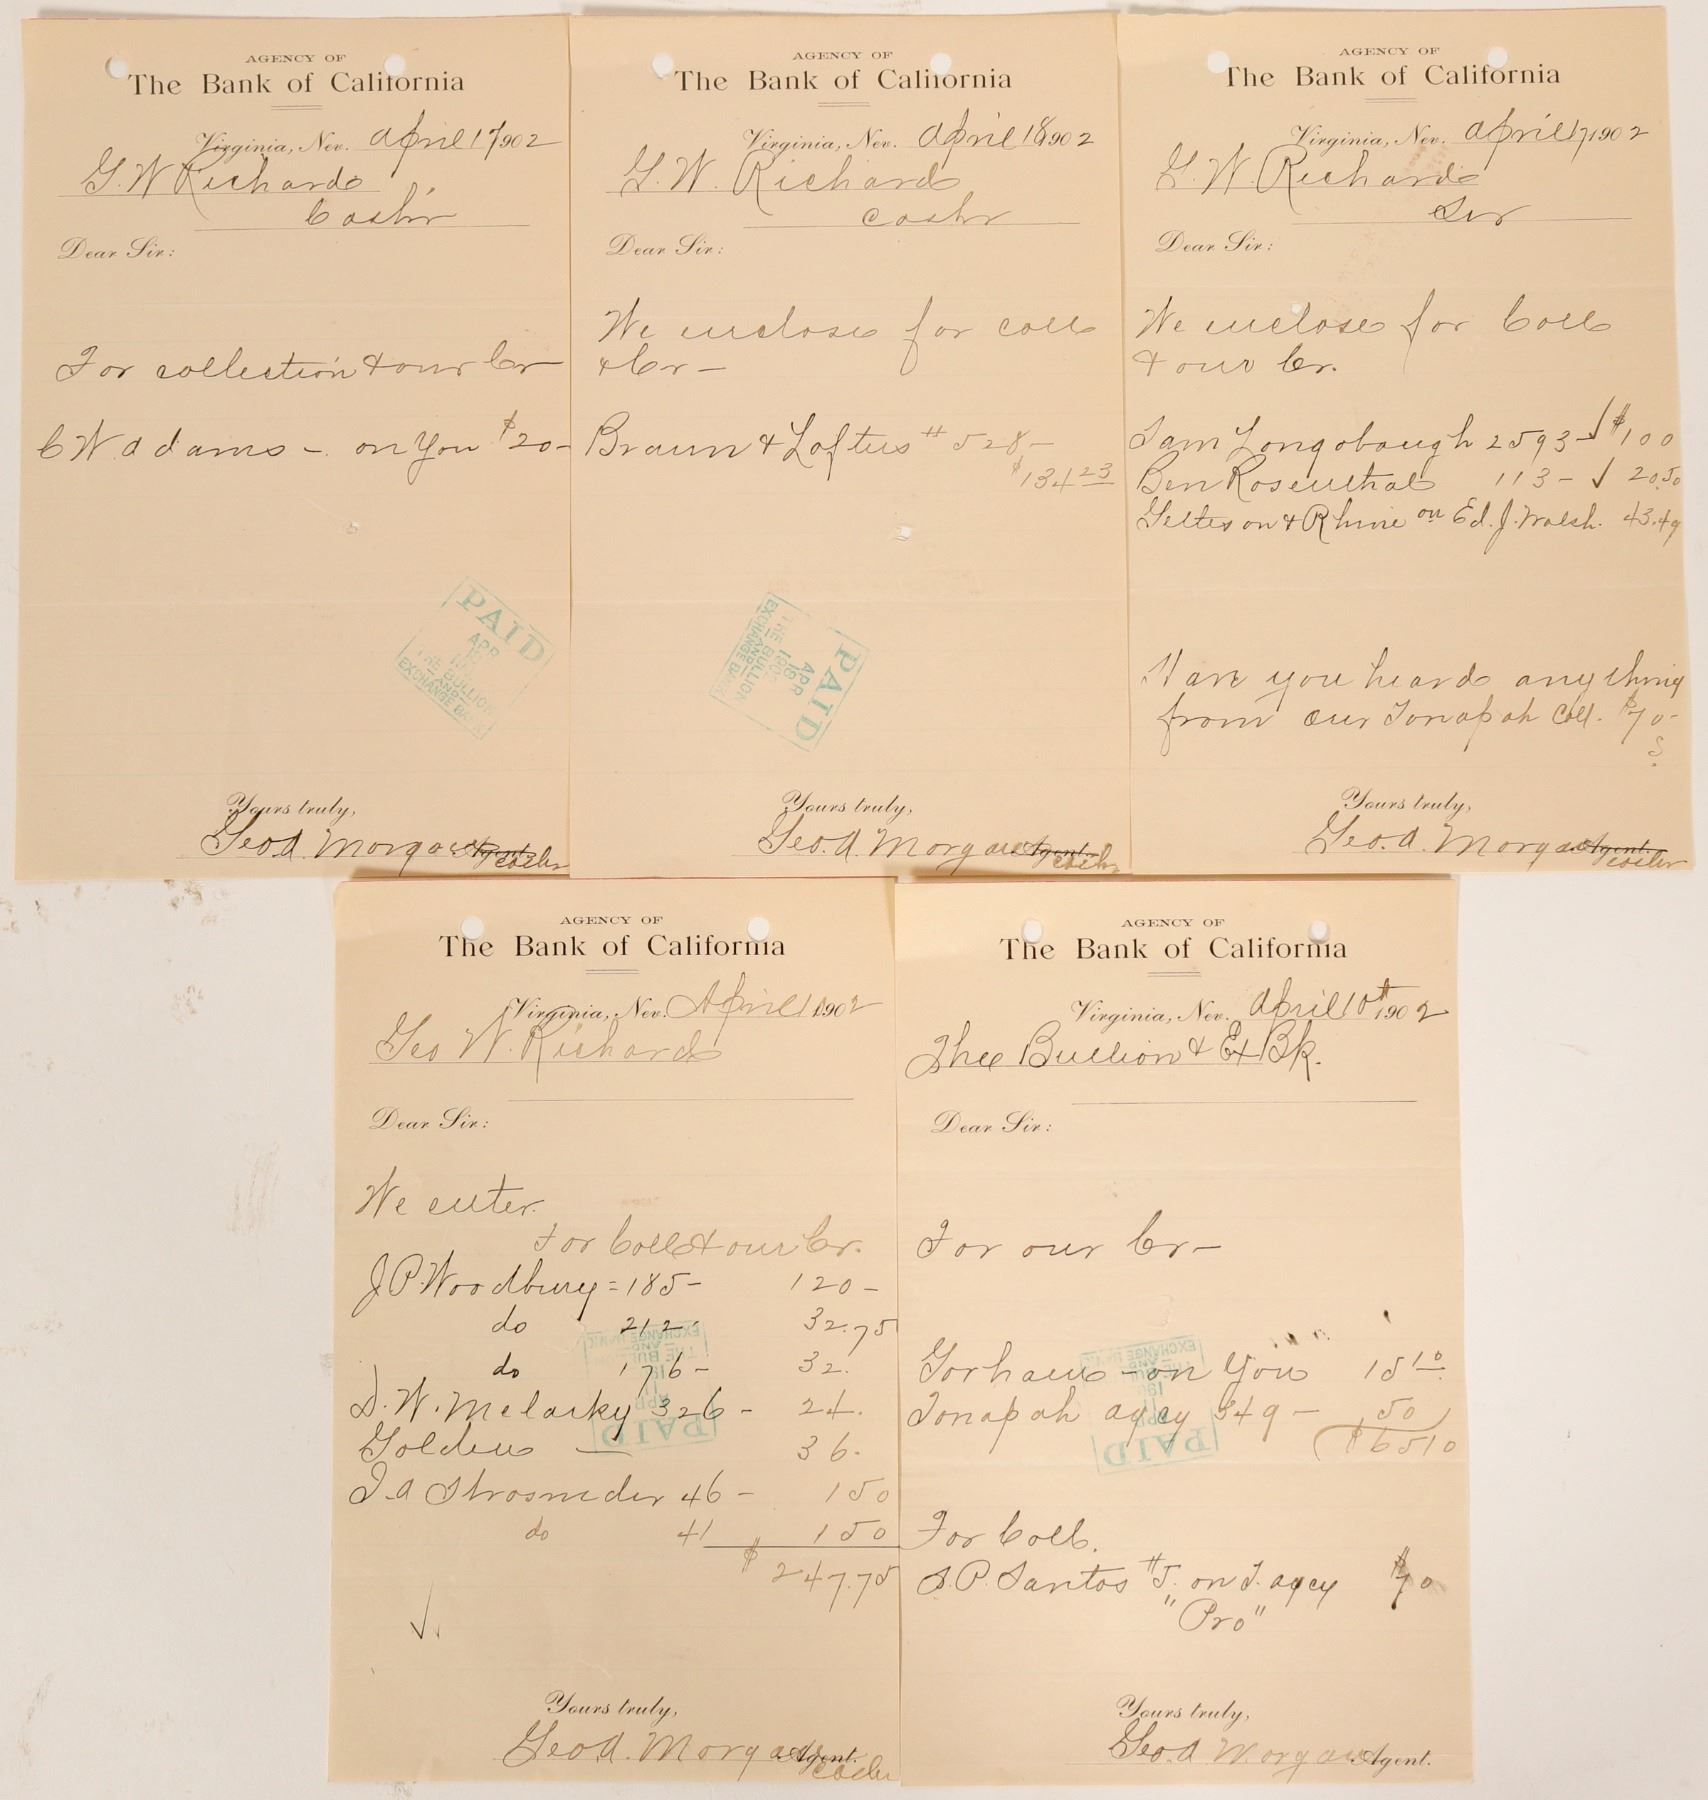 AGENCY OF
The Bank of California
Virginia, Nev. April 17 1902
G. W Richards
Cashr
Dear Sir:
For collection & our Cr
C W. Adams - on You $20-
PAID
APR
THE BULLION
-AND-
EXCHANGE BANK
Yours truly,
Geo. A. Morgan Agent.
AGENCY OF
The Bank of California
Virginia, Nev. April 18 1902
G. W. Richards
Cashr
Dear Sir:
We enclose for coll
& Cr -
Braun & Loftus # 528-
$134 23
PAID
APR
18
1902
THE BULLION
-AND-
EXCHANGE BANK
Yours truly,
Geo. A. Morgan Agent.
AGENCY OF
The Bank of California
Virginia, Nev. April 17 1902
G. W. Richards
Sir
Dear Sir:
We enclose for Coll
& our Cr.
Sam Longobaugh 2593- $100
Ben Rosenthal 113- 20.50
on Ed. J. Walsh. 43.49
Have you heard anything
from our Tonapah Coll. $70-
?
Yours truly,
Geo. A. Morgan Agent.
AGENCY OF
The Bank of California
Virginia, Nev. April 11 1902
Geo W. Richards
Dear Sir:
We enter.
For Coll & our Cr.
J P. Woodbury = 185- 120-
do 212- 32.75
do 176- 32.
D. W. Melarky 326- 24.
Golden — 36.
J. A Strosnider 46- 150
do 41 150
$247.75
PAID
APR
11
THE BULLION
-AND-
EXCHANGE BANK
Yours truly,
Geo. A. Morgan Agent.
AGENCY OF
The Bank of California
Virginia, Nev. April 10th 1902
The Bullion & Ex Bk.
Dear Sir:
For our Cr-
Gorham - on You 15 10
Tonapah agcy 349- 50
$65 10
PAID
THE BULLION
-AND-
EXCHANGE BANK
For Coll.
S. P. Santos #5. on T. agcy $70
"Pro"
Yours truly,
Geo. A Morgan Agent.